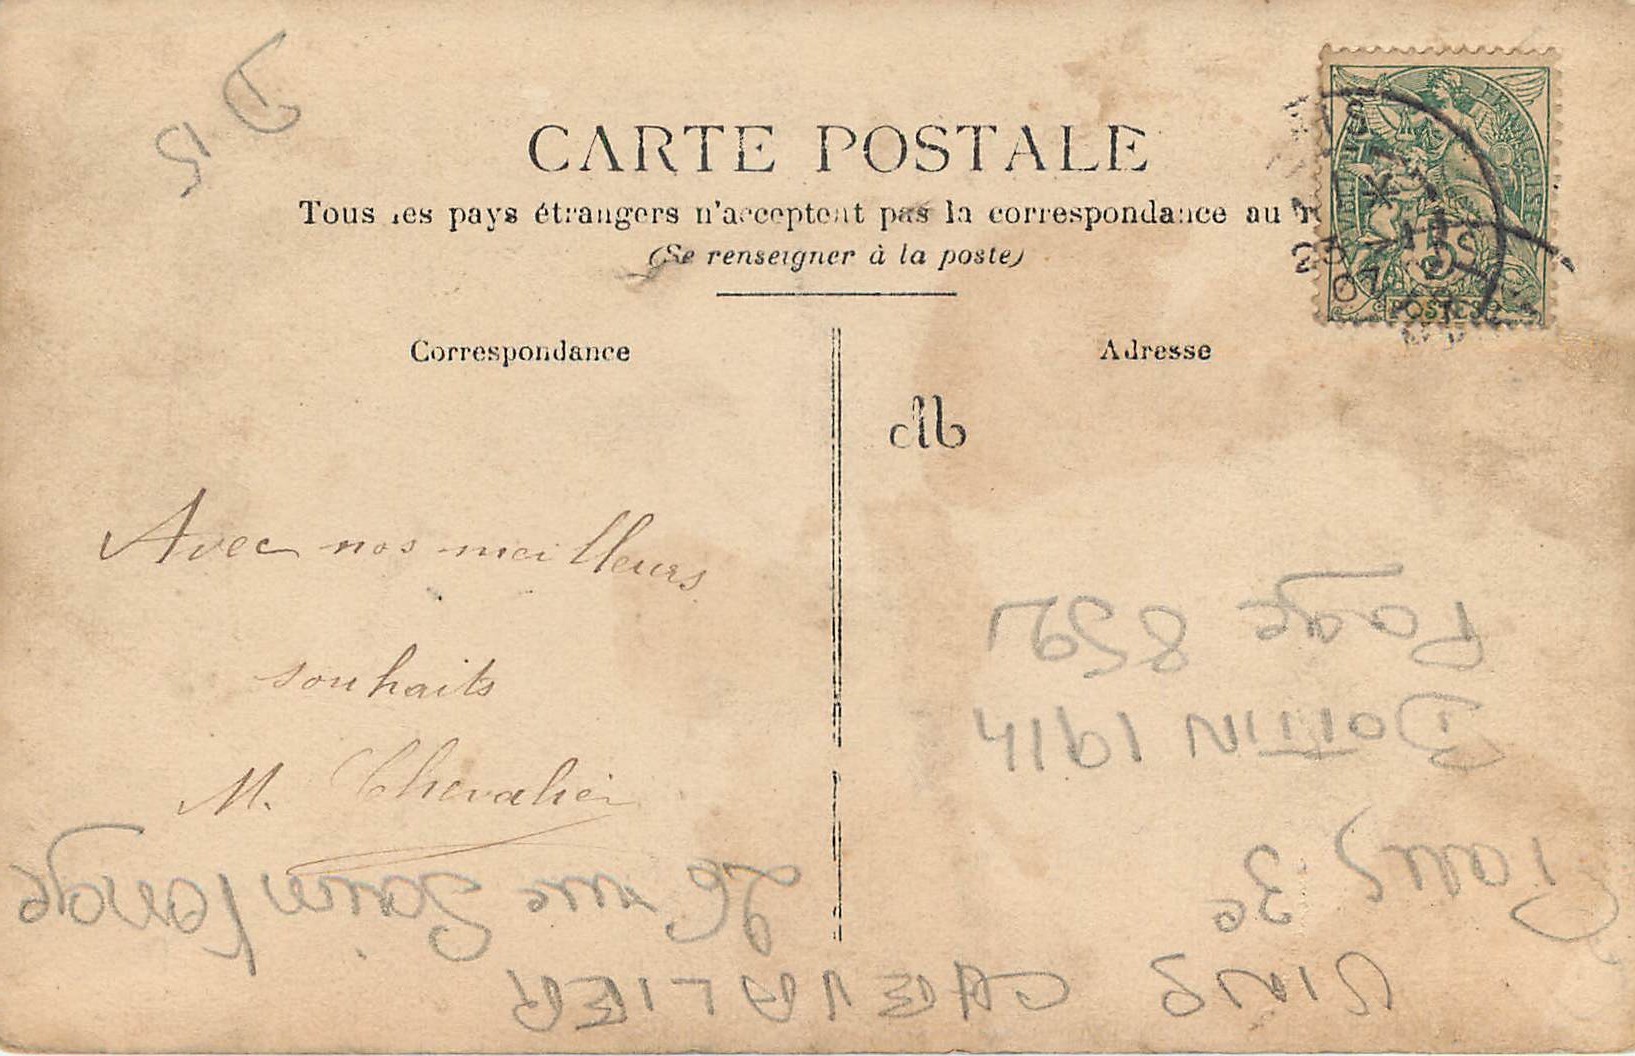 CARTE POSTALE
Tous les pays étrangers n'acceptent pas la correspondance au
(Se renseigner à la poste)
Correspondance
Adresse
Avec nos meilleurs
souhaits
M. Chevalier
FRANÇAISE
POSTES
07
VINS CHEVALIER
26 rue Saintonge
Paris 3e
BOTTIN 1914
Page 859
D 15